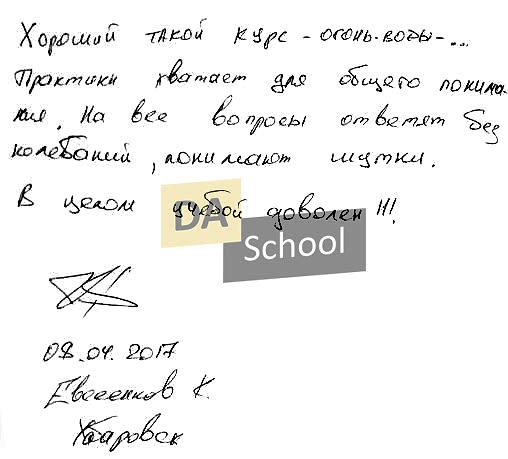 Хороший такой курс - огонь-воды-...
Практики хватает для общего понима-
ния. На все вопросы ответят без
колебаний, понимают шутки.
В целом учёбой доволен!!!
DA
School
08.04.2017
Евсеенков К.
Хабаровск